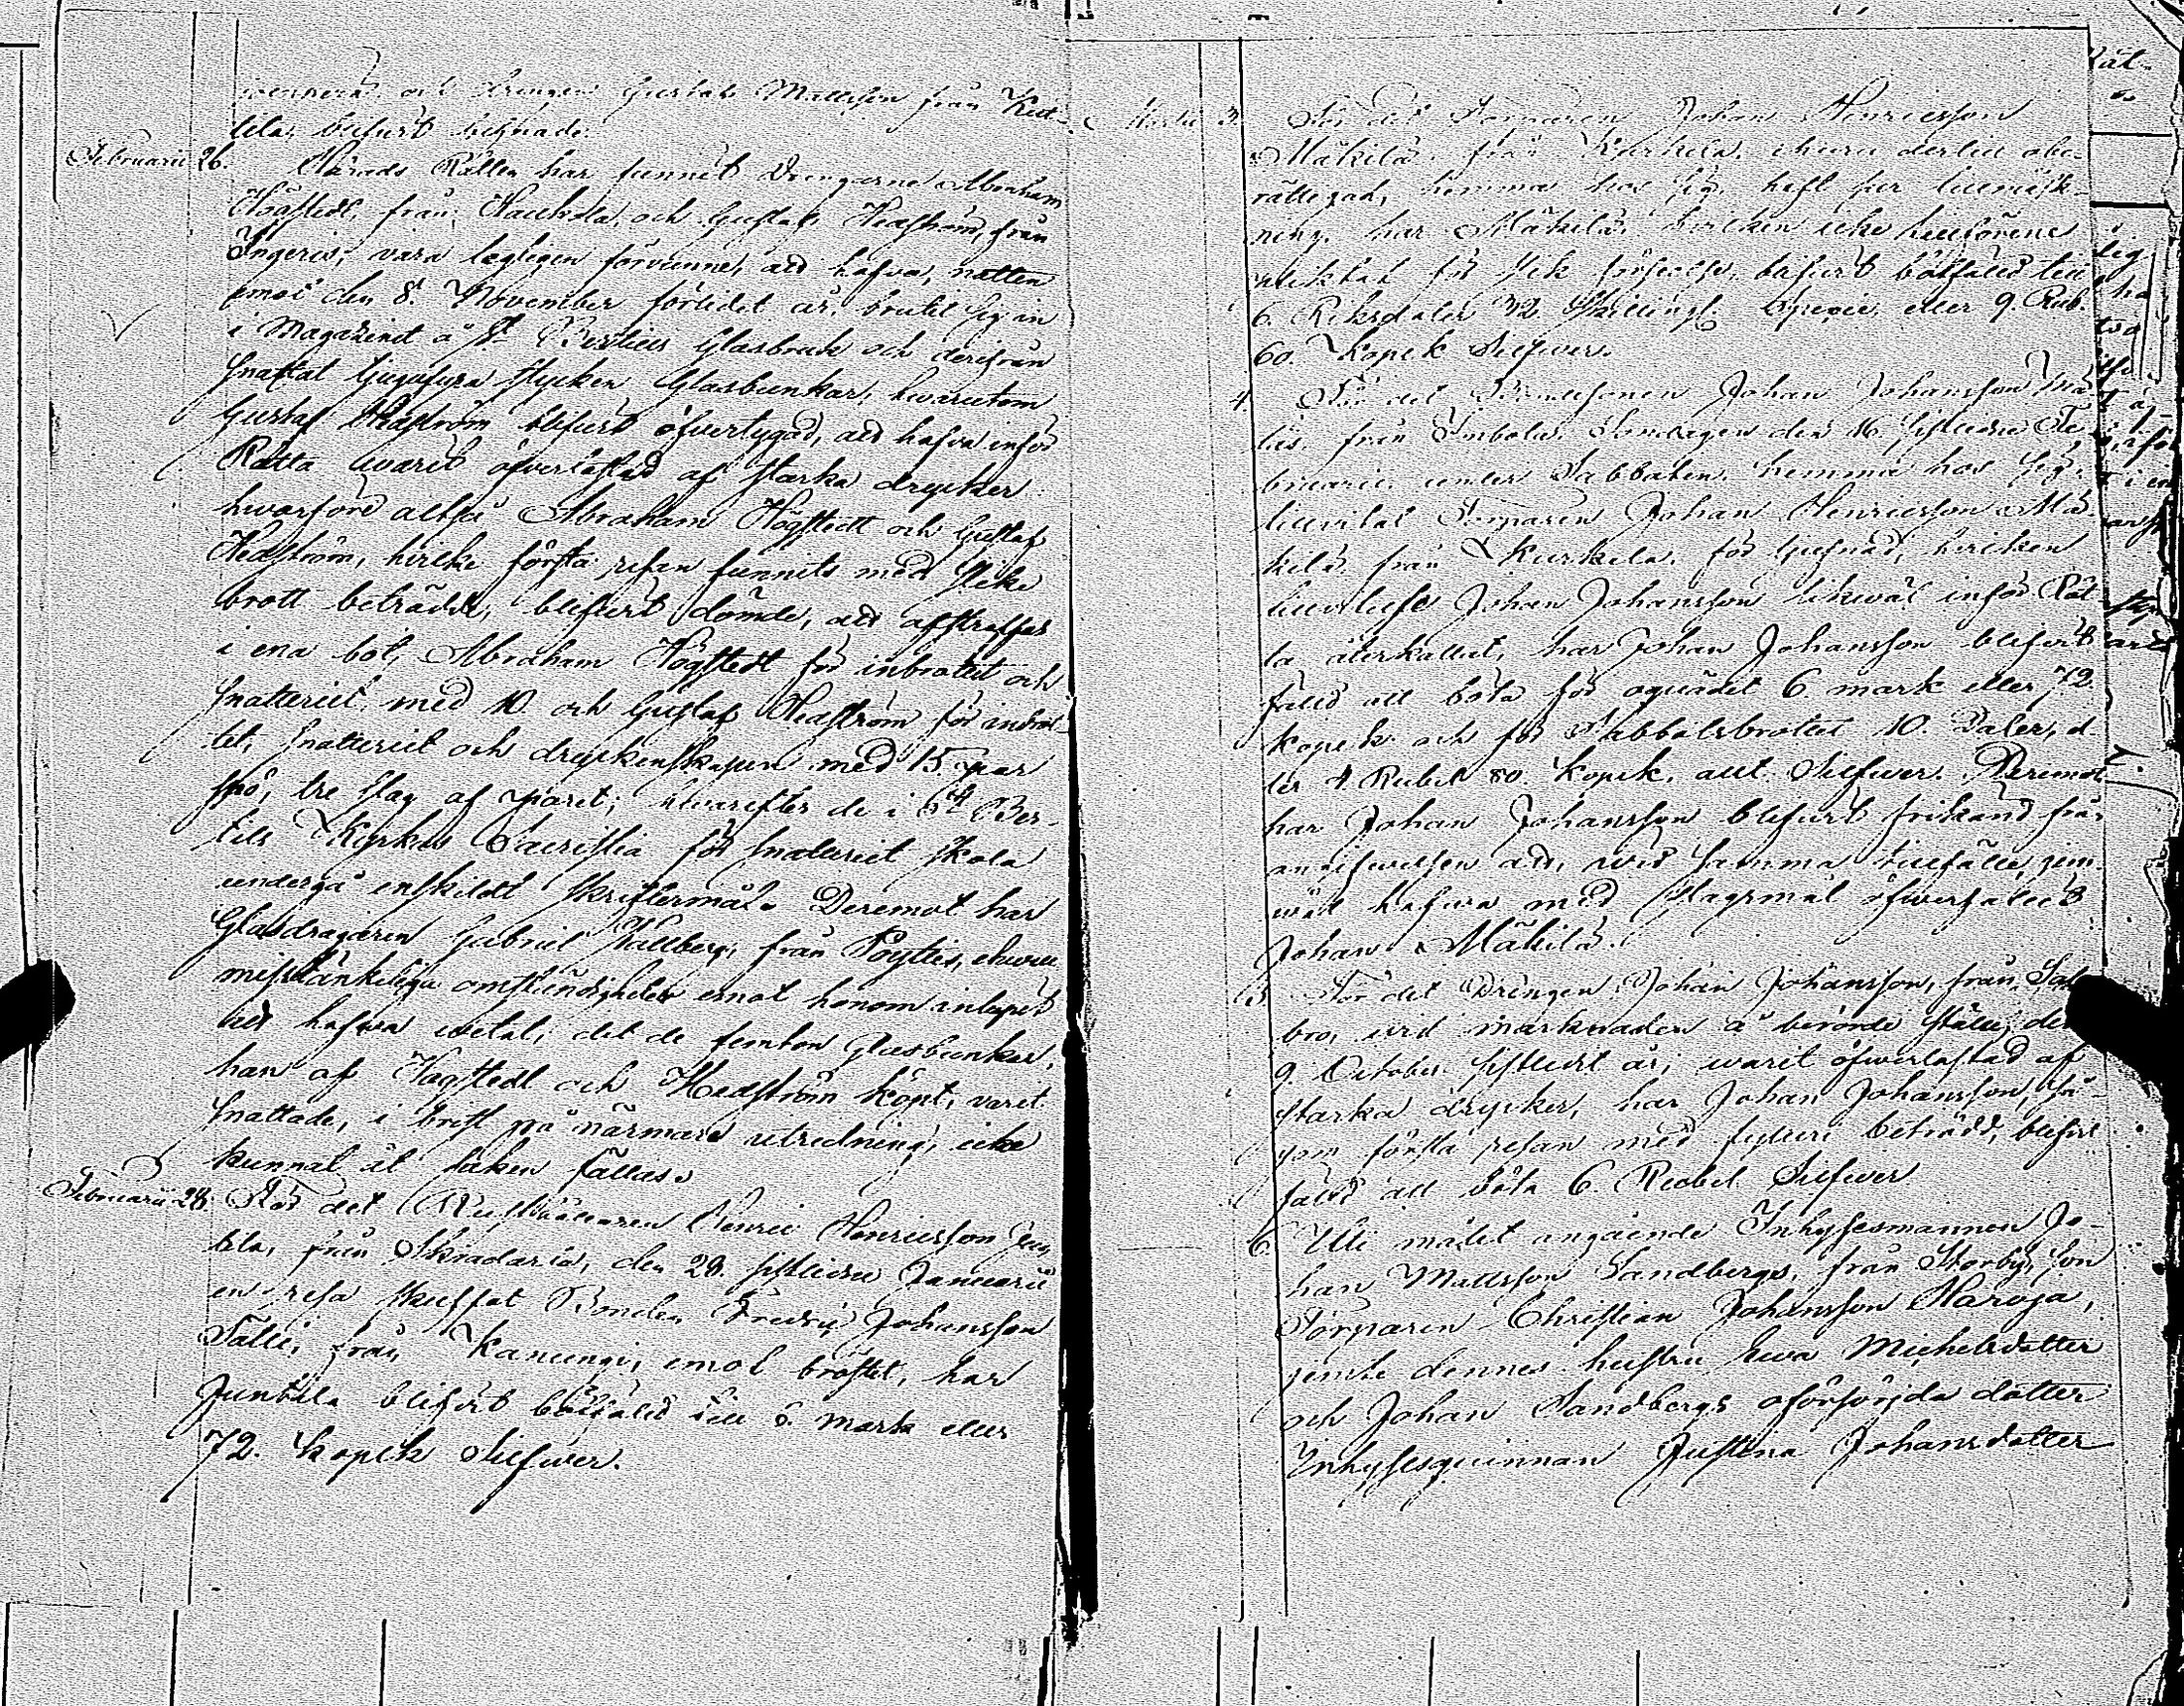 och Drengen Gustaf Mattsson från Kett-
lela, blifvit befriade.
Februarii 26. Härads Rätten har funnit Drengarne Abraham
Högstedt, från Haukola, och Gustaf Hedström, från
Ingeris, vara lagligen förvunne, att hafva, natten
emot den 8. November förlidet år, brutit sig in
i Magazinet å St Bertils Glasbruk och derifrån
snattat tjugufyra stycken Glasbunkar, hvarutom
Gustaf Hedström blifvit öfvertygad, att hafva inför
Rätta warit öfverlastad af starka drycker
hwarföre altså Abraham Högstedt och Gustaf
Hedström, hvilke första resan funnits med slike
brott beträdde, blifvit dömde, att afstraffas
i ena bot, Abraham Högstedt för inbrottet och
snatteriet, med 10 och Gustaf Hedström för inbrot-
tet, snatteriet och dryckenskapen med 15. par
spö, tre slag af paret; hvarefter de i St Ber-
tils Kyrkas Sacristia för snatteriet skola
undergå enskildt skriftermål. Deremot har
Glasdragaren Gabriel Hallberg, från Pöytis, ehuru
misstänkeliga omständigheter emot honom inlupit
att hafva wetat, det de femton Glasbunkar,
han af Högstedt och Hedström köpt, varit
snattade, i brist på närmare utredning, icke
kunnat åt saken fällas.
Februarii 28. För det Rusthållaren Henric Henricsson Jun
tila, från Skradarlä, den 28. sistledne Januarii
en resa skuffat Bonden Fredric Johansson
Talli, från Kanungi, emot bröstet, har
Juntila blifvit bötfäld till 6. mark eller
72. kopek Silfwer.
Martii 3. För det Torparen Johan Henricsson
Mäkilä, från Kurkela, ehuru dertill obe-
rättigad, hemma hos sig haft för
ning, har Mäkilä, hvilken icke tillförene
pliktat för slik förseelse, blifvit bötfäld till
6. Riksdaler 32 Skilling Specie, eller 9. Rub.
60. Kopek Silfwer.
4. För det Bondesonen Johan Johansson
från Imbola, Söndagen den 16. sistledne Fe
bruarii, under Sabbaten, hemma hos sig,
tillvitat Torparen Johan Henricsson Mä-
kilä från Kurkela, för tjufnad, hvilken
tillvitelse Johan Johansson likwäl inför Rät
ta återkallat, har Johan Johansson blifvit
fäld att böta för oquädet 6 mark eller 72
kopek och för Sabbatsbrottet 10. Daler, el-
ler 4 Rubel 80. kopek, allt Silfwer. Deremot
har Johan Johansson blifvit frikänd från
angifwelsen att, wid samma tillfälle, jem-
wäl hafwa med slagsmål öfwerfallit
Johan Mäkilä.
5. För det Drengen Johan Johansson, från Sal
bro, wid marknaden å berörde ställe, den
9. October sistledit år, warit öfwerlastad af
starka drycker, har Johan Johansson, så-
som första resan med fylleri beträdd, blifvit
fäld att böta 6. Rubel Silfwer
6. Uti målet angående Inhysesmannen Jo-
han Mattsson Sandbergs, från Storby, son
Torparen Christian Johansson Haroja,
jemte dennes hustru Ewa Michelsdotter
och Johan Sandbergs oförsörjda dotter
Inhysesquinnan Justina Johansdotter